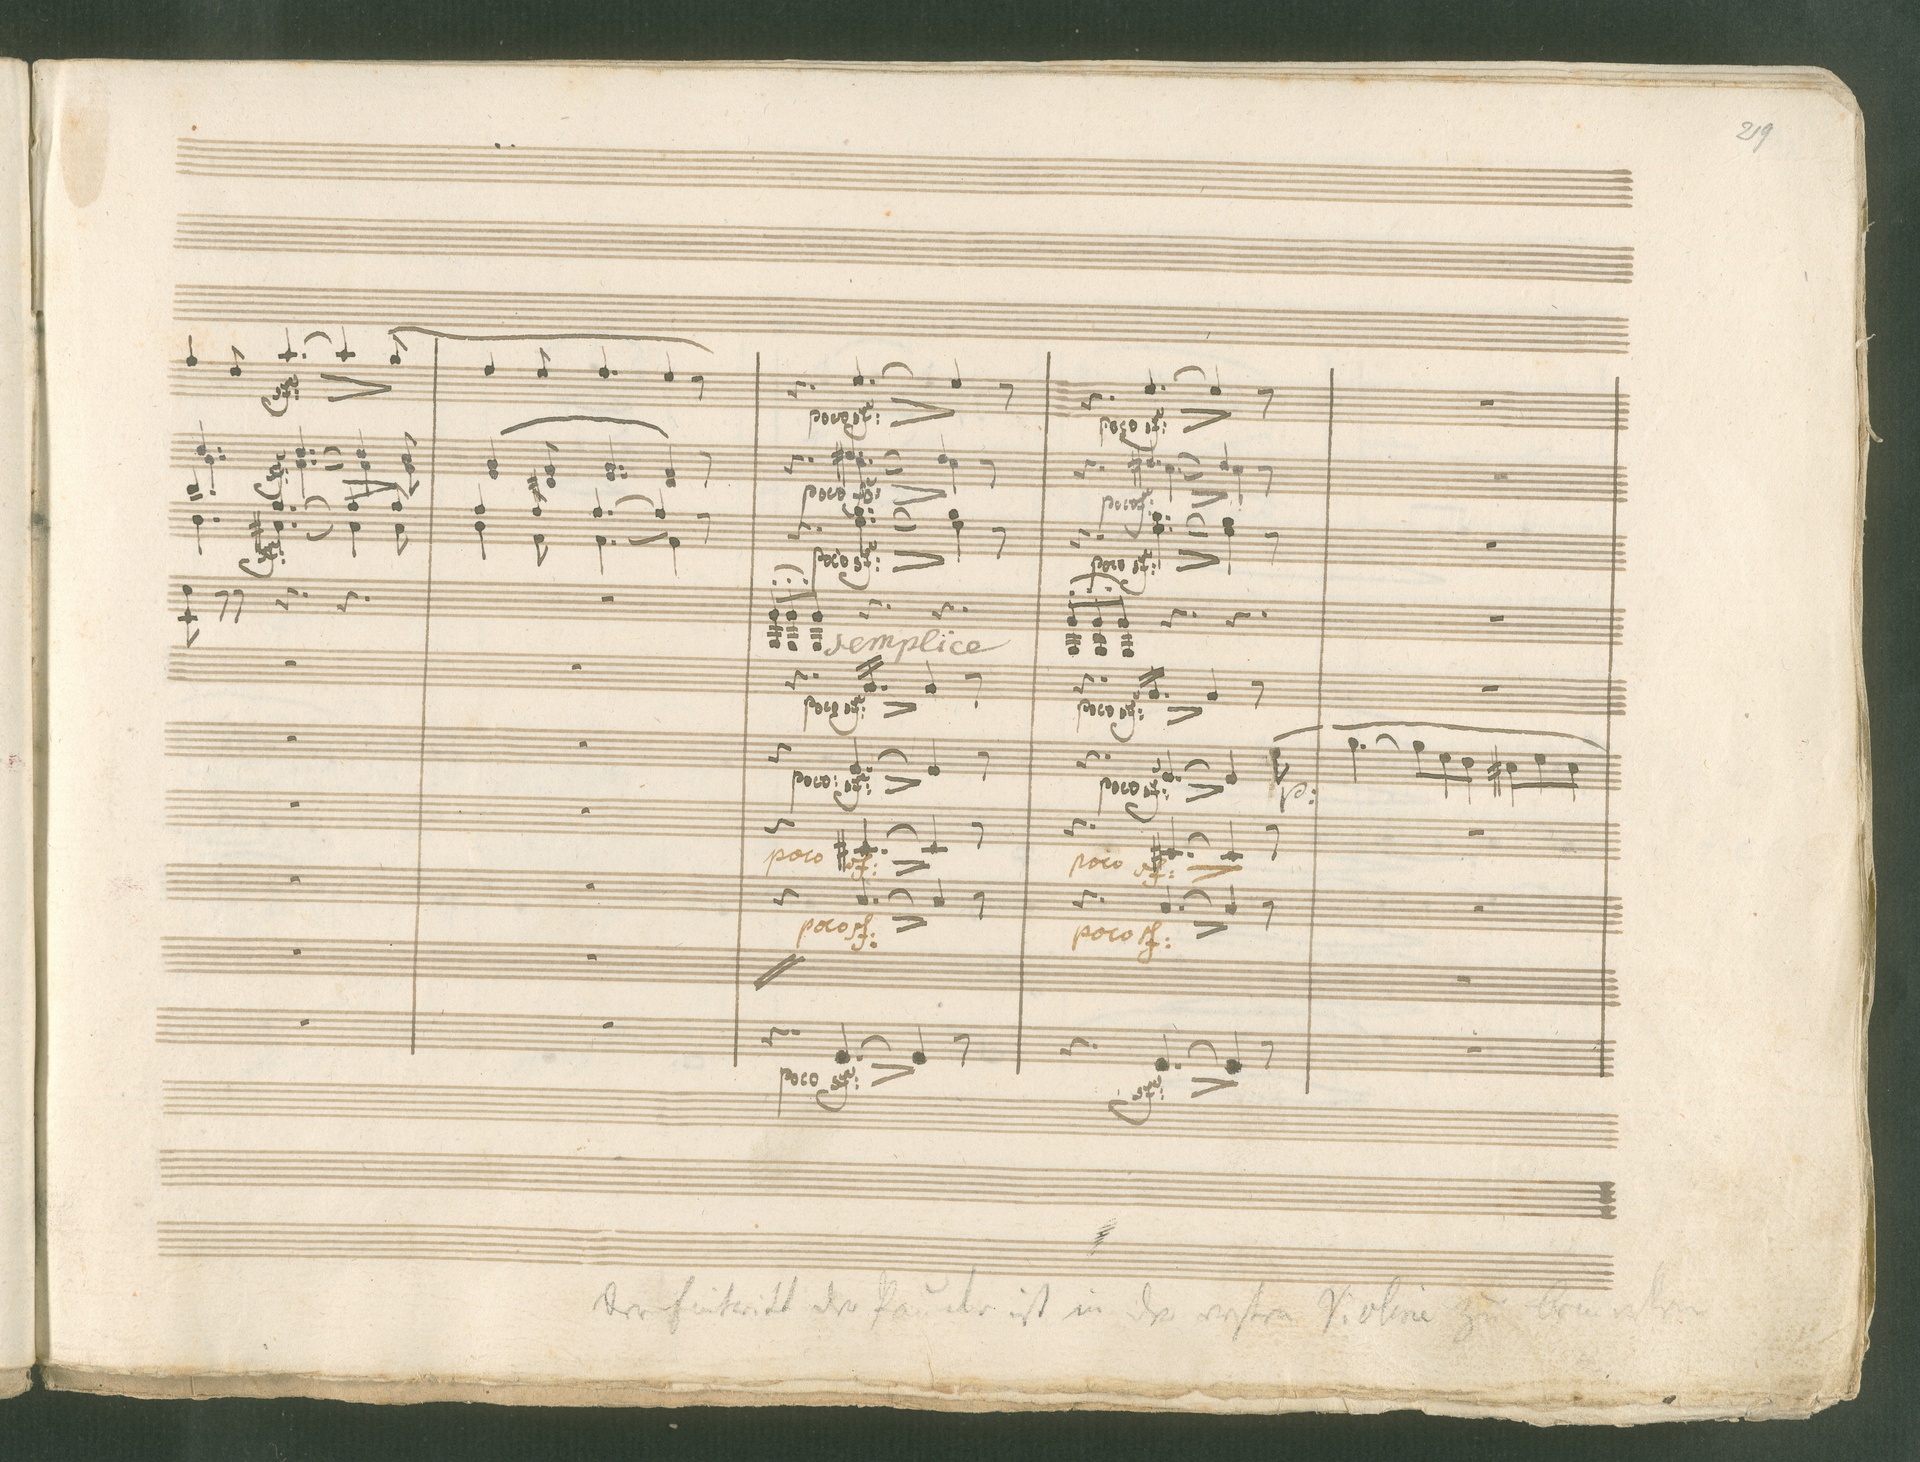 219
poco sf: poco sf:
poco sf: poco sf:
poco sf: poco sf:
semplice
poco sf: poco sf:
poco: sf: poco sf: p:
poco sf: poco sf:
poco sf: poco sf:
poco sf: sf:
Der Eintritt der Pauke ist in der ersten Violine zu